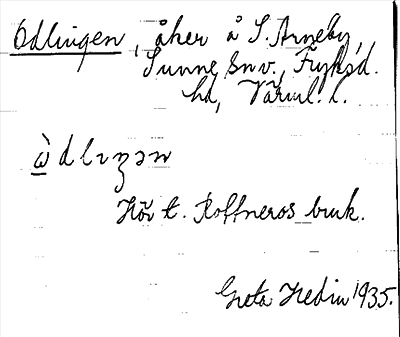 Odlingen, åker å S. Arneby,
Sunne snv., Fryksd.
hd, Värml. l.
ὼ̱dlıŋən
Hör t. Roffneros bruk.
Greta Hedin 1935.